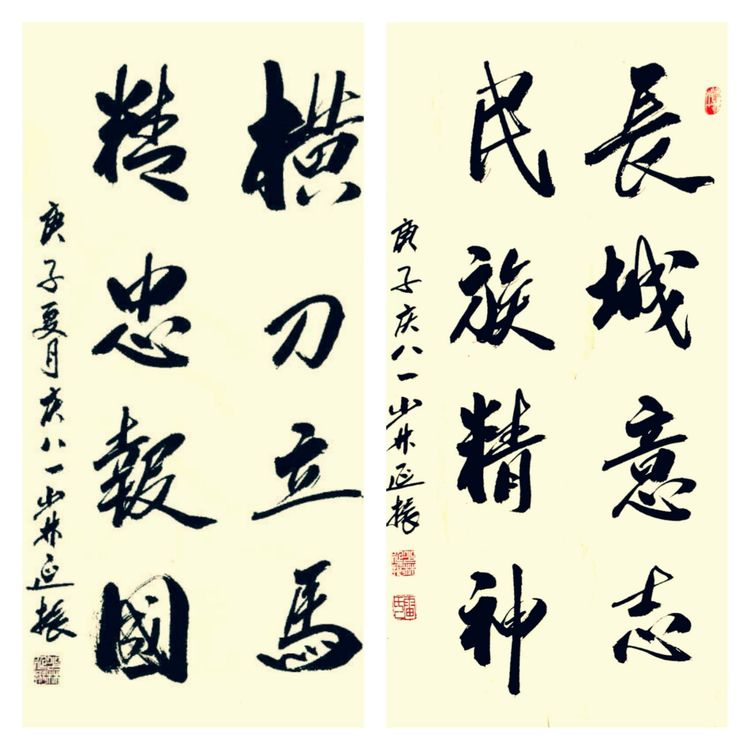 横刀立馬
精忠報國
庚子夏月庆八一少林延振
長城意志
民族精神
庚子庆八一少林延振